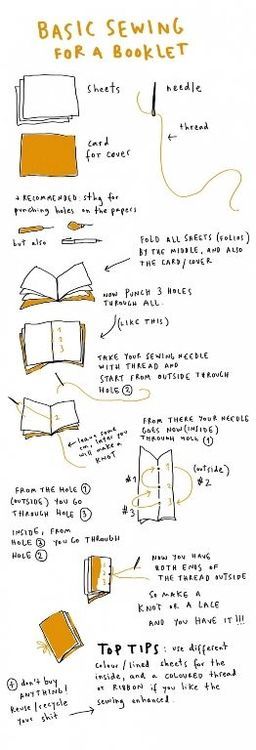 BASIC SEWING
FOR A BOOKLET
sheets
needle
thread
card
for cover
+ RECOMMENDED: sthg for
punching holes on the papers
but also
FOLD ALL SHEETS (FOLIOS)
BY THE MIDDLE, AND ALSO
THE CARD/COVER
NOW PUNCH 3 HOLES
THROUGH ALL.
(LIKE THIS)
1
2
3
TAKE YOUR SEWING NEEDLE
WITH THREAD AND
START FROM OUTSIDE THROUGH
HOLE ②
2
leave some
cm, later you
will make a
KNOT
FROM THERE YOUR NEEDLE
GOES NOW (INSIDE)
THROUGH HOLE ①
#1
(outside)
#2
#3
1
2
3
FROM THE HOLE ①
(OUTSIDE) YOU GO
THROUGH HOLE ③
INSIDE, FROM
HOLE ③ YOU GO THROUGH
HOLE ②
NOW YOU HAVE
BOTH ENDS OF
THE THREAD OUTSIDE
SO MAKE A
KNOT OR A LACE
AND YOU HAVE IT!!!
TOP TIPS: use different
colour/lined sheets for the
inside, and a coloured thread
or RIBBON if you like the
sewing enhanced.
+ don't buy
ANYTHING!
Reuse/recycle
your shit